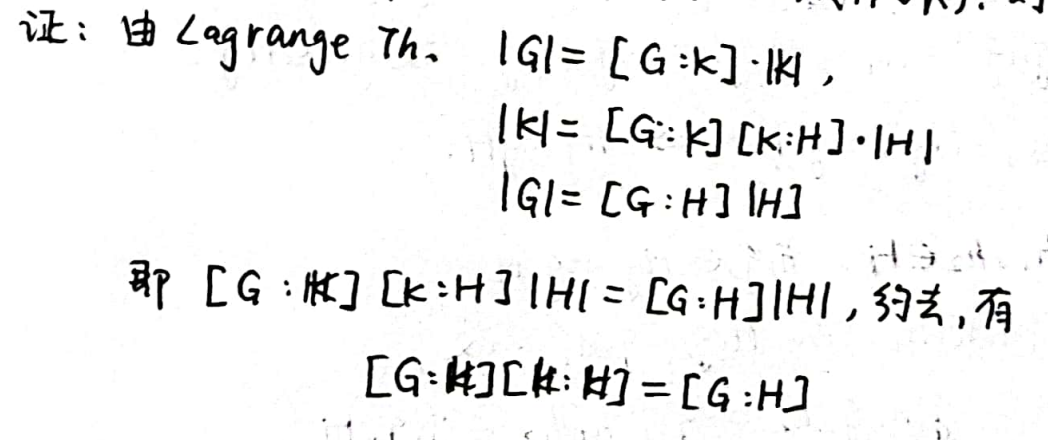 证: 由 Lagrange Th. |G| = [G:K]·|K|,
|K| = [G:K][K:H]·|H|
|G| = [G:H]|H]
即 [G:K][K:H]|H| = [G:H]|H|, 约去, 有
[G:K][K:H] = [G:H]